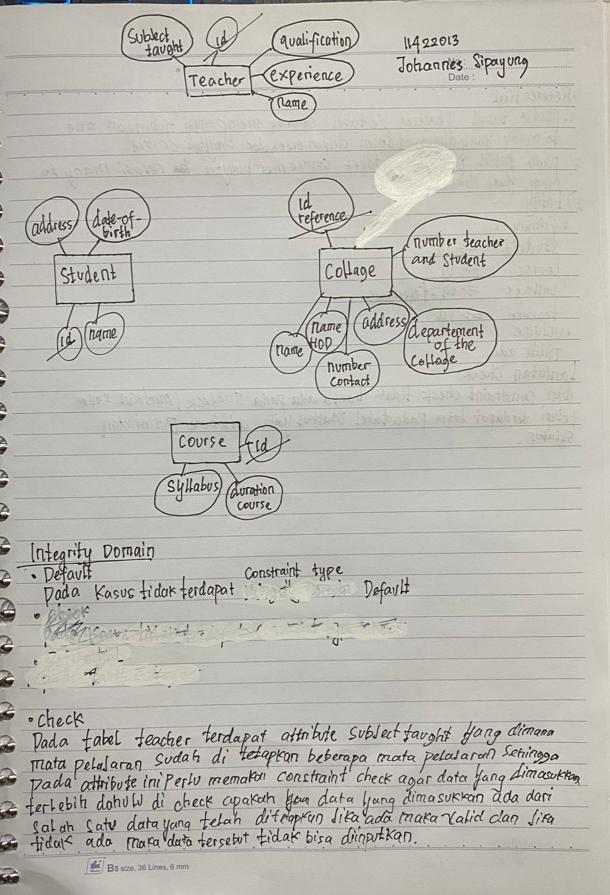 Subject
taught
id
qualification
11422013
Johannes Sipayung
Date :
Teacher
experience
name
address
date-of-
birth
id
reference
number teacher
and Student
Student
Collage
id
name
name
name
HOD
address
departement
of the
Collage
number
contact
Course
id
Syllabus
duration
course
Integrity Domain
• Default
Pada Kasus tidak terdapat Constraint type Default
• Check
• Check
Pada tabel teacher terdapat attribute subject taught yang dimana
mata pelajaran sudah di tetapkan beberapa mata pelajaran Sehingga
Pada attribute ini Perlu memakai constraint check agar data yang dimasukkan
terlebih dahulu di check apakah data yang dimasukkan ada dari
salah satu data yang telah diterapkan jika ada maka valid dan jika
tidak ada maka data tersebut tidak bisa diinputkan.
B5 size, 36 Lines, 6 mm